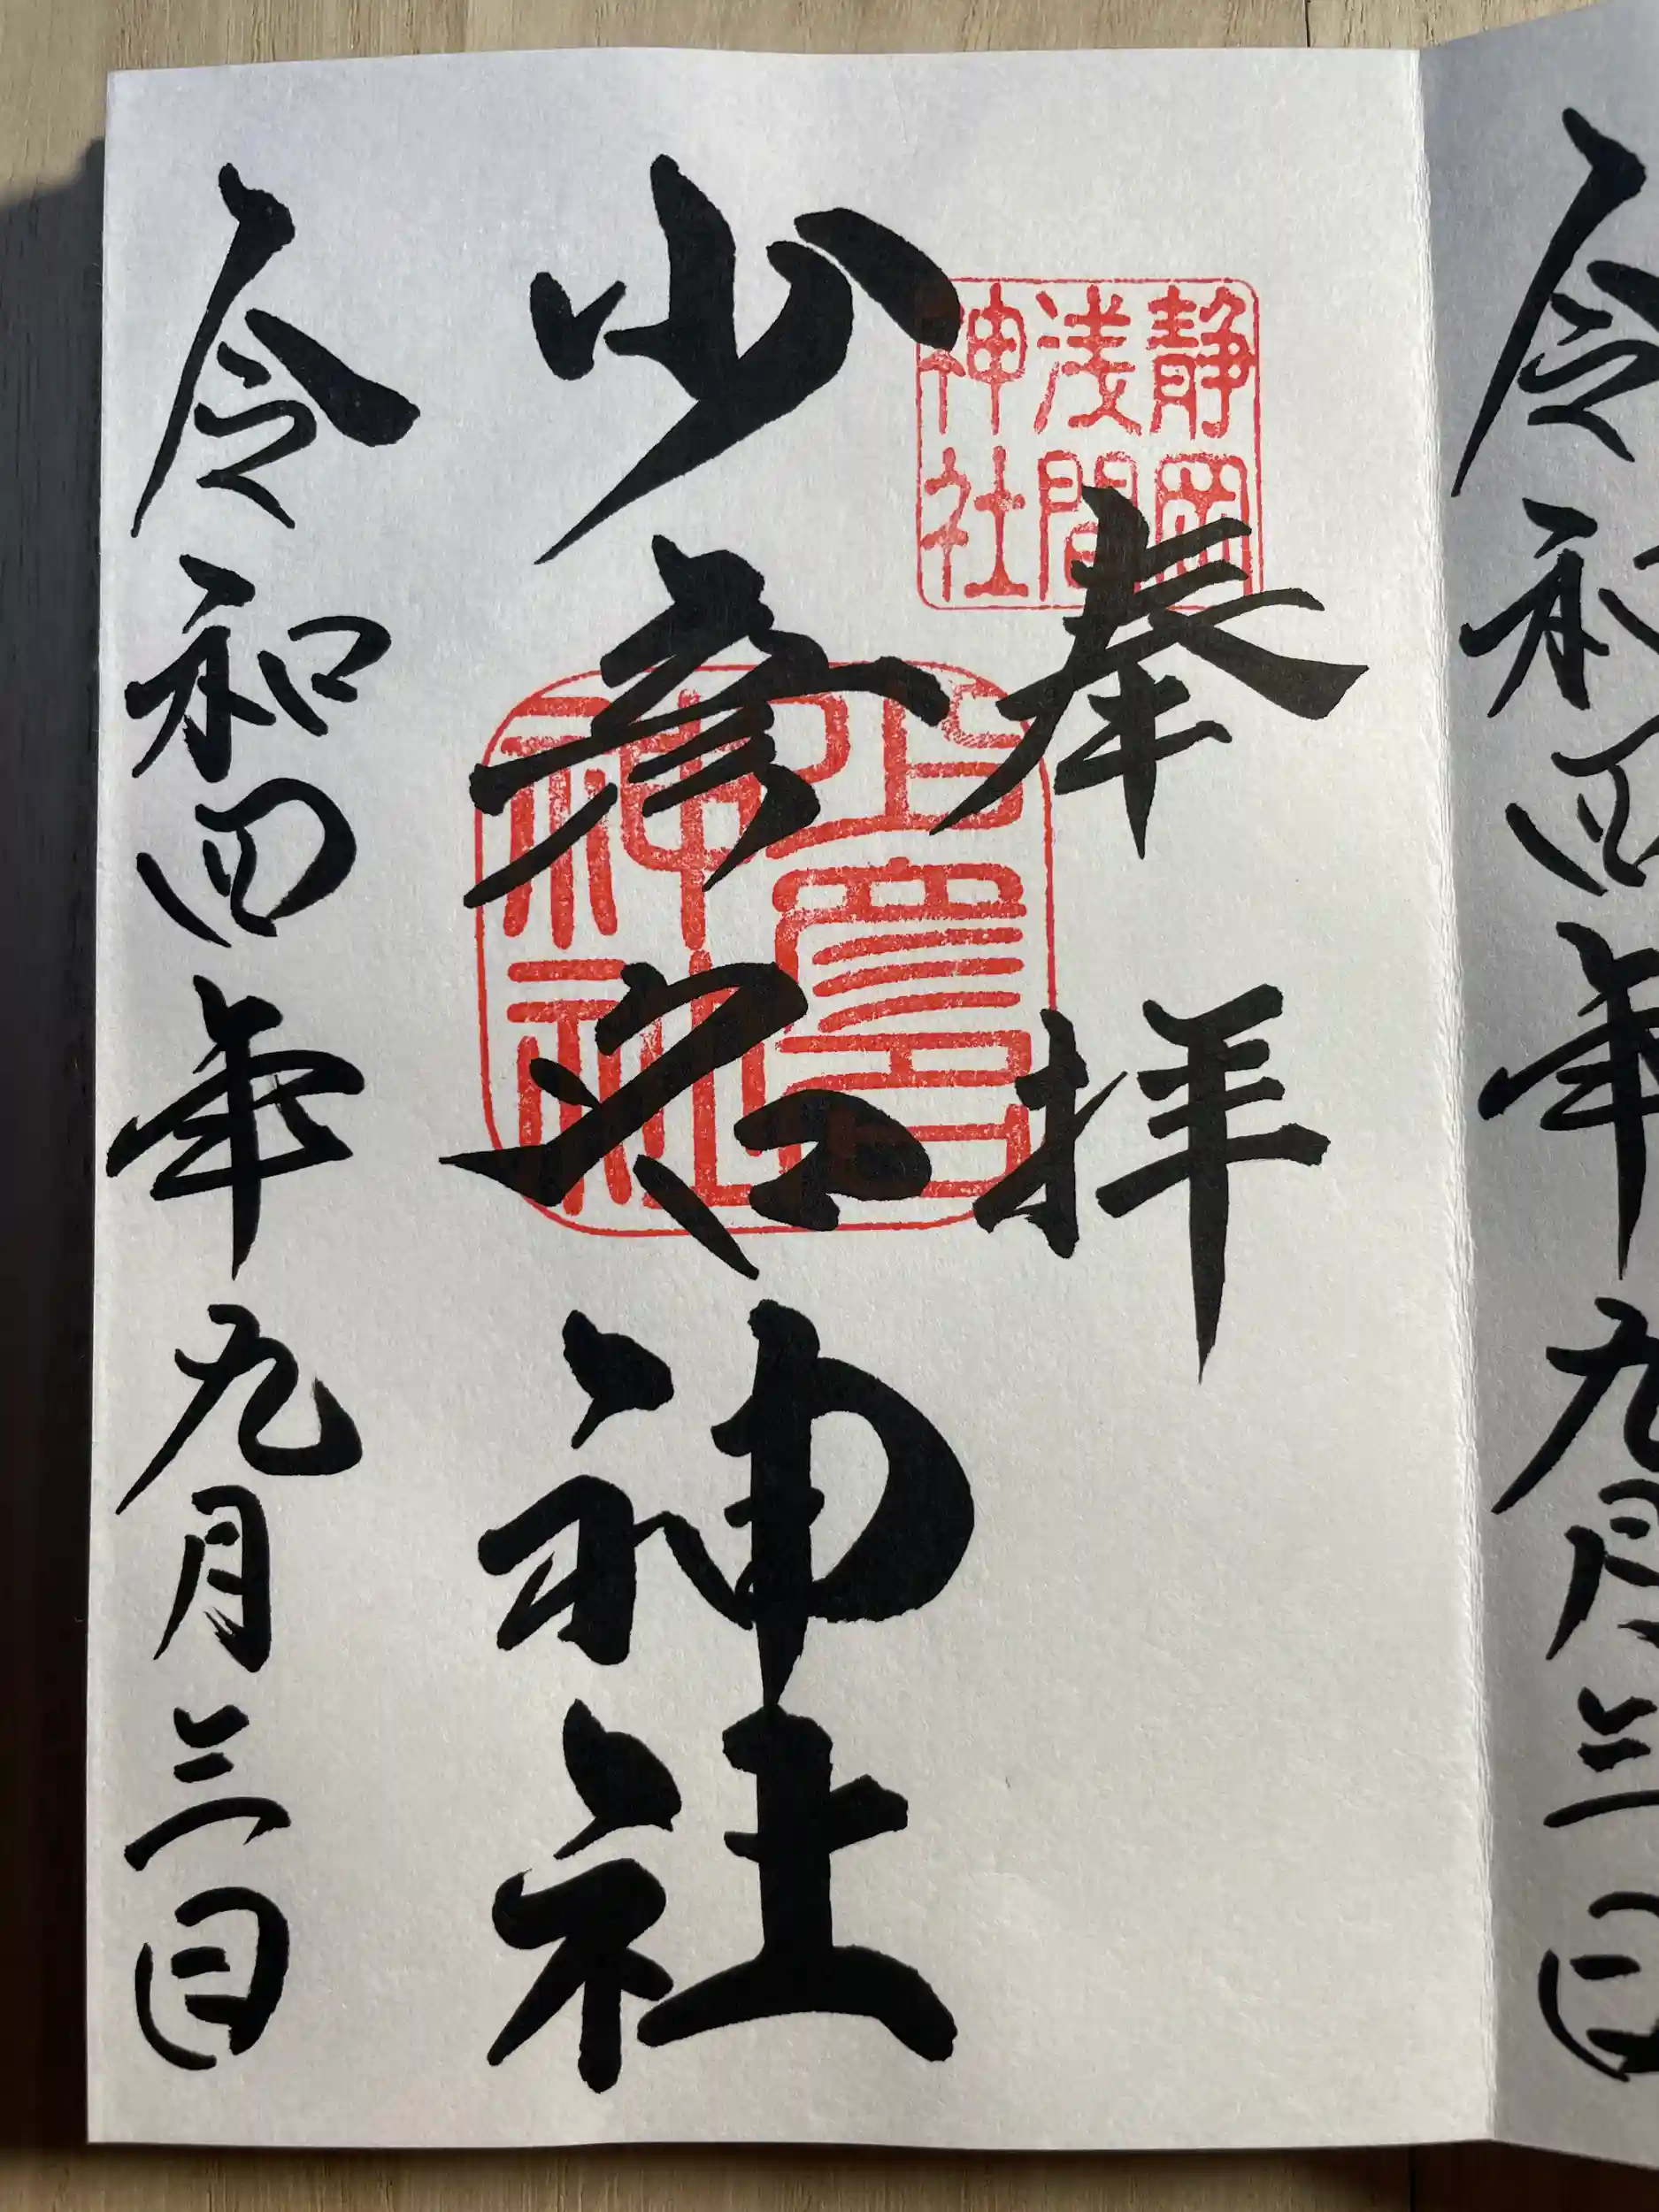 奉拝
静岡
浅間
神社
少彦名神社
少彦名
神社
令和四年九月三日
令和四年九月三日